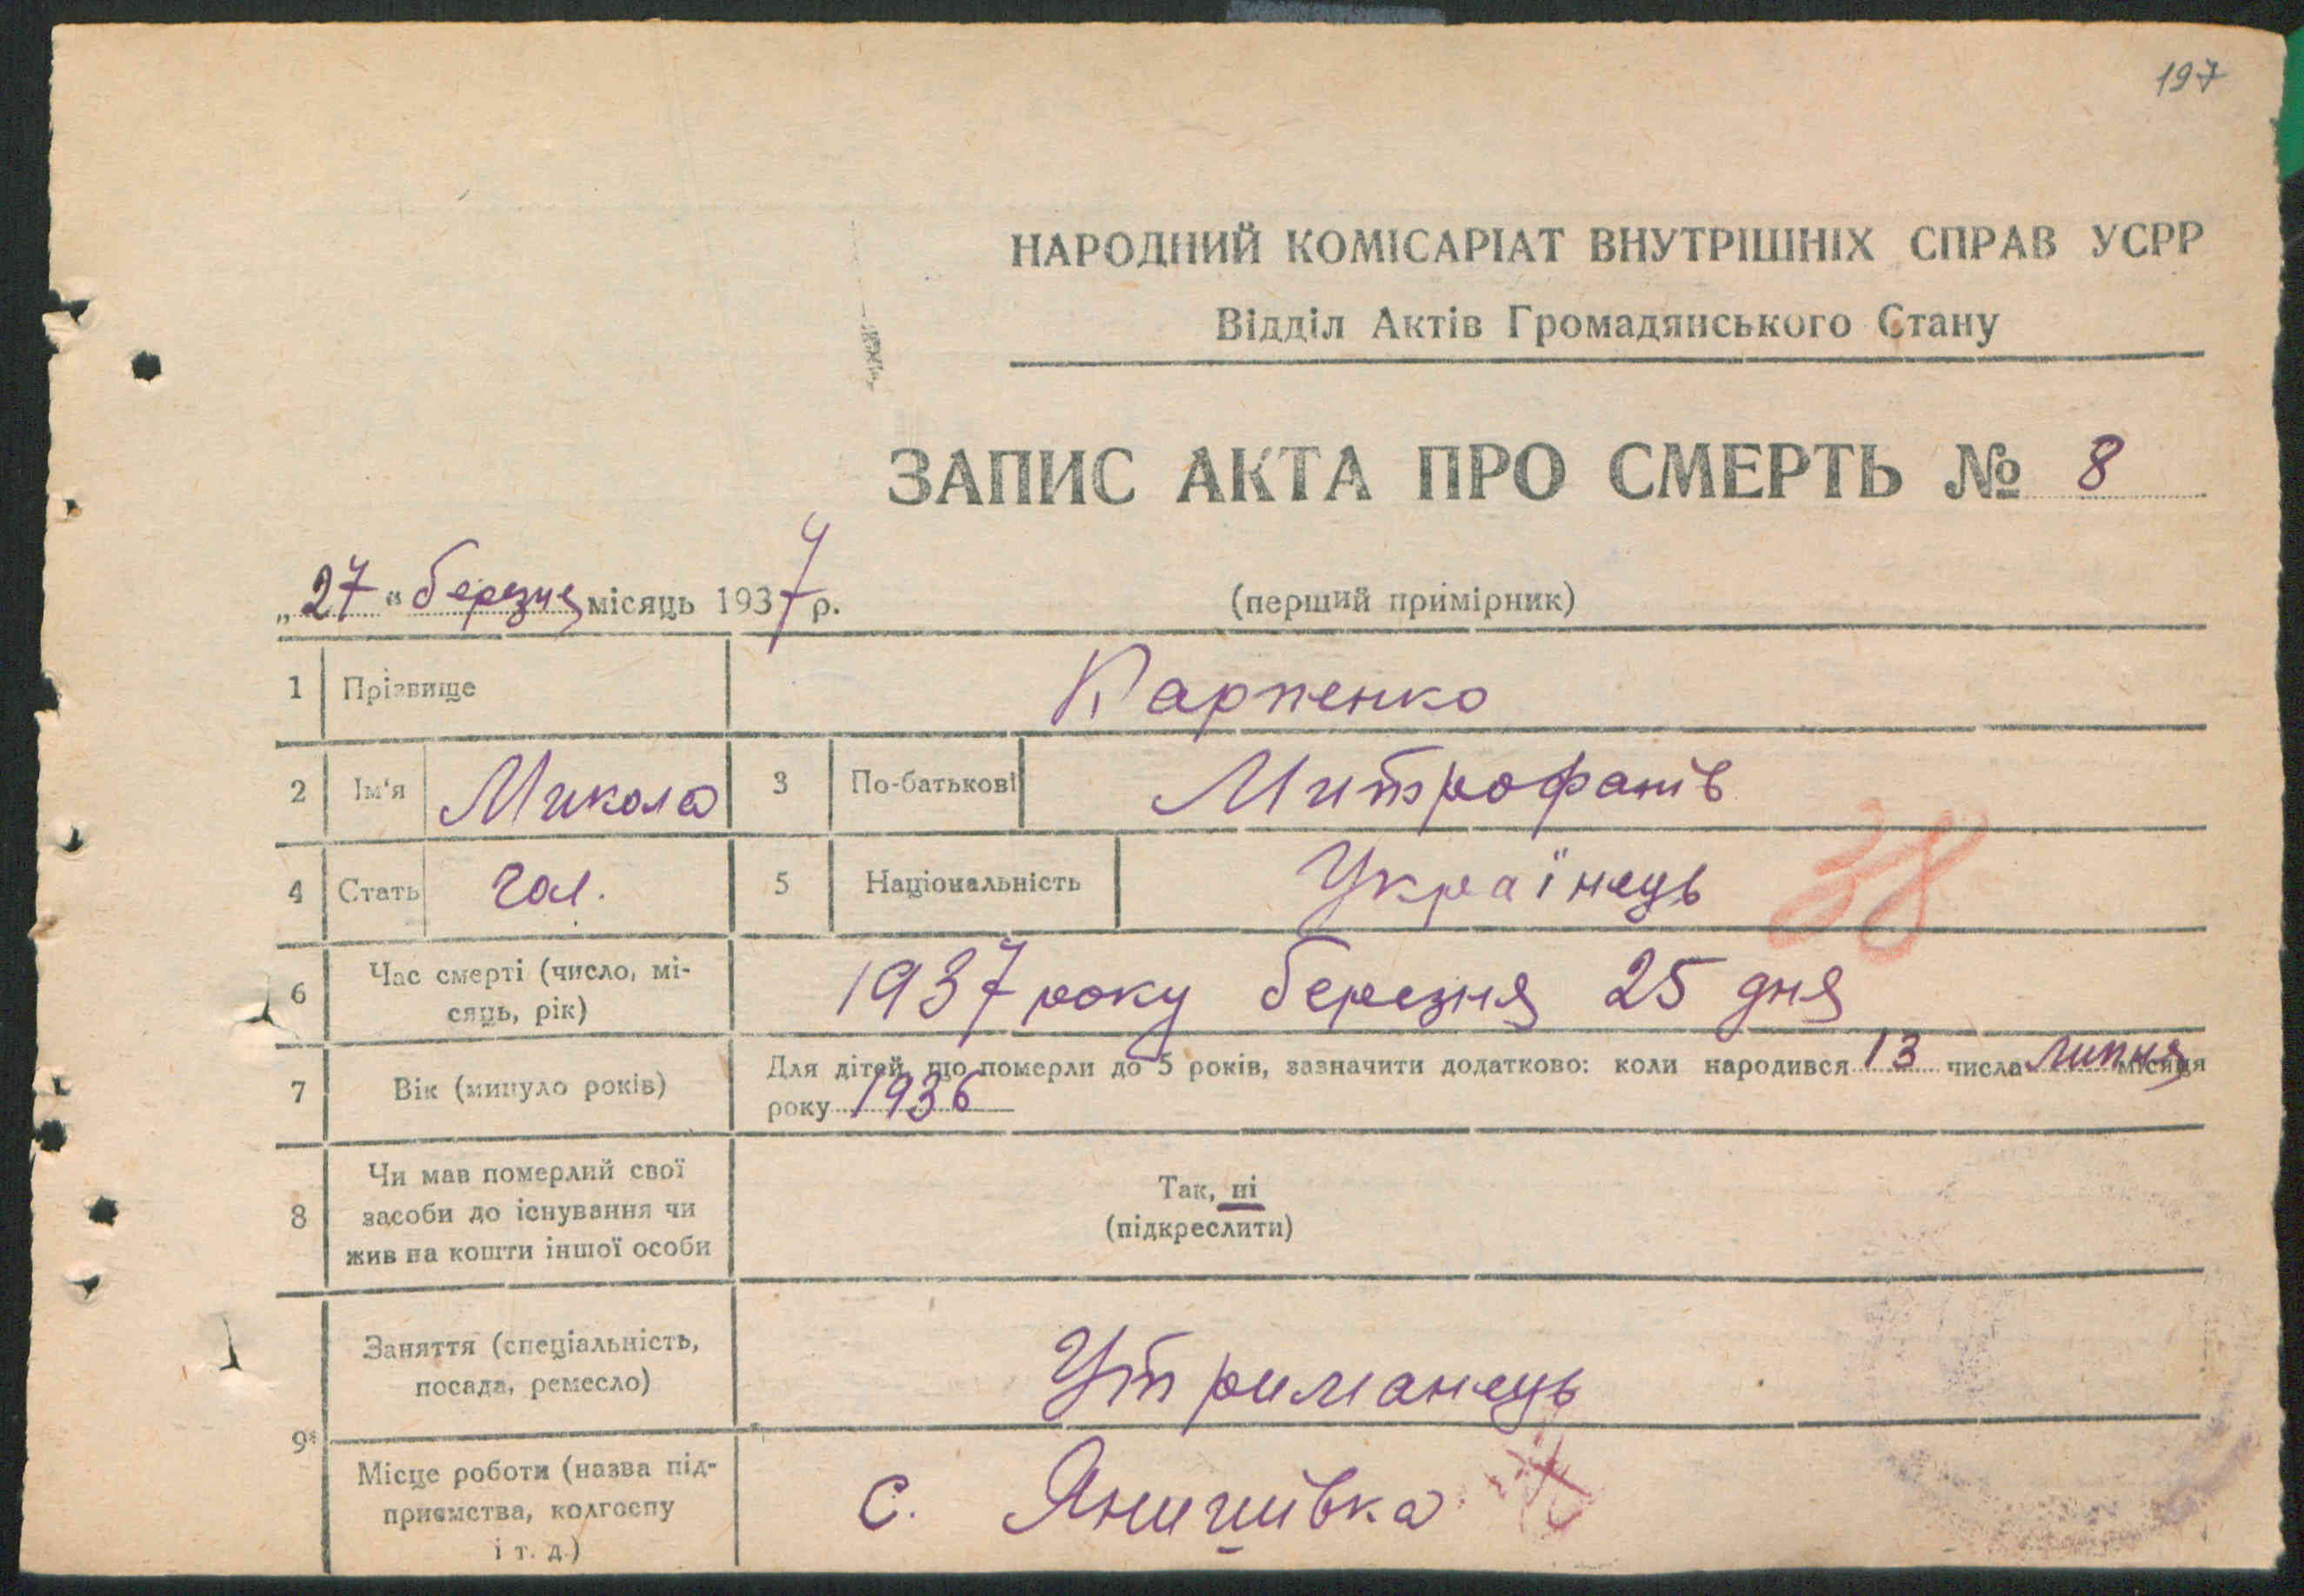 197
НАРОДНИЙ КОМІСАРІАТ ВНУТРІШНІХ СПРАВ УСРР
Відділ Актів Громадянського Стану
ЗАПИС АКТА ПРО СМЕРТЬ № 8
„27“ березня місяць 1937 р.
(перший примірник)
1 Прізвище Карпенко
2 Ім'я Микола 3 По-батькові Митрофанів
4 Стать чол. 5 Національність Українець
38
6 Час смерті (число, мі-
сяць, рік) 1937 року березня 25 дня
7 Вік (минуло років) Для дітей, що померли до 5 років, зазначити додатково: коли народився 13 числа липня місяця
року 1936
8 Чи мав померлий свої
засоби до існування чи
жив на кошти іншої особи
Так, ні
(підкреслити)
9 Заняття (спеціальність,
посада, ремесло) Утриманець
Місце роботи (назва під-
приємства, колгоспу
і т. д.)
с. Янишівка